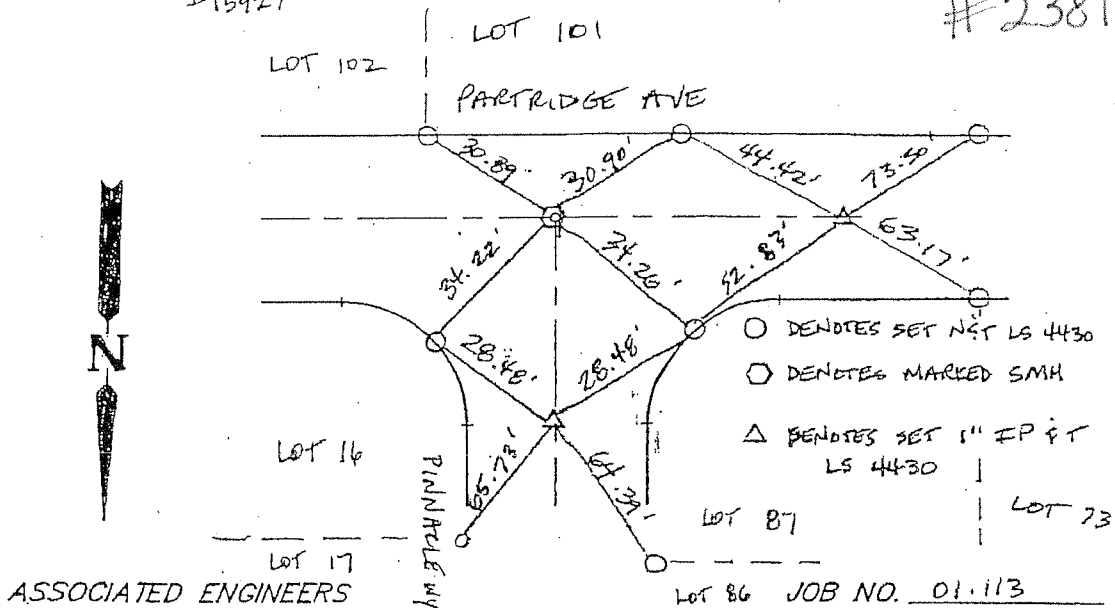 #2381
LOT 101
LOT 102
PARTRIDGE AVE
30.89
30.90'
44.42'
73.50
63.17'
34.22'
34.26'
52.83'
28.48'
28.48'
○ DENOTES SET N&T LS 4430
⬡ DENOTES MARKED SMH
△ DENOTES SET 1" IP & T
LS 4430
N
LOT 16
PINNACLE WY
64.39'
LOT 87
LOT 73
LOT 17
LOT 86
ASSOCIATED ENGINEERS
JOB NO. 01.113